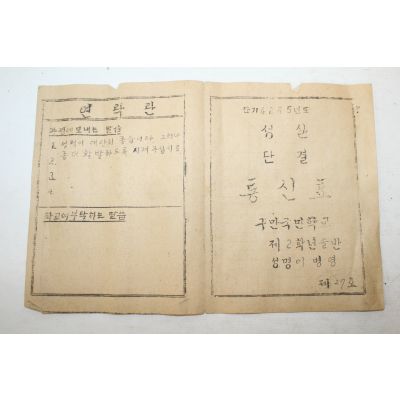 연락란
가정에 보내는 말씀
1. 성적이 대단히 좋습니다 그러나
2. 좀 더 활발하도록 지도
3.
4.
학교에 부탁하는 말씀
단기4285년도
성실
단결
통신표
국민학교
제2학년 반
성명 이병영
제27호